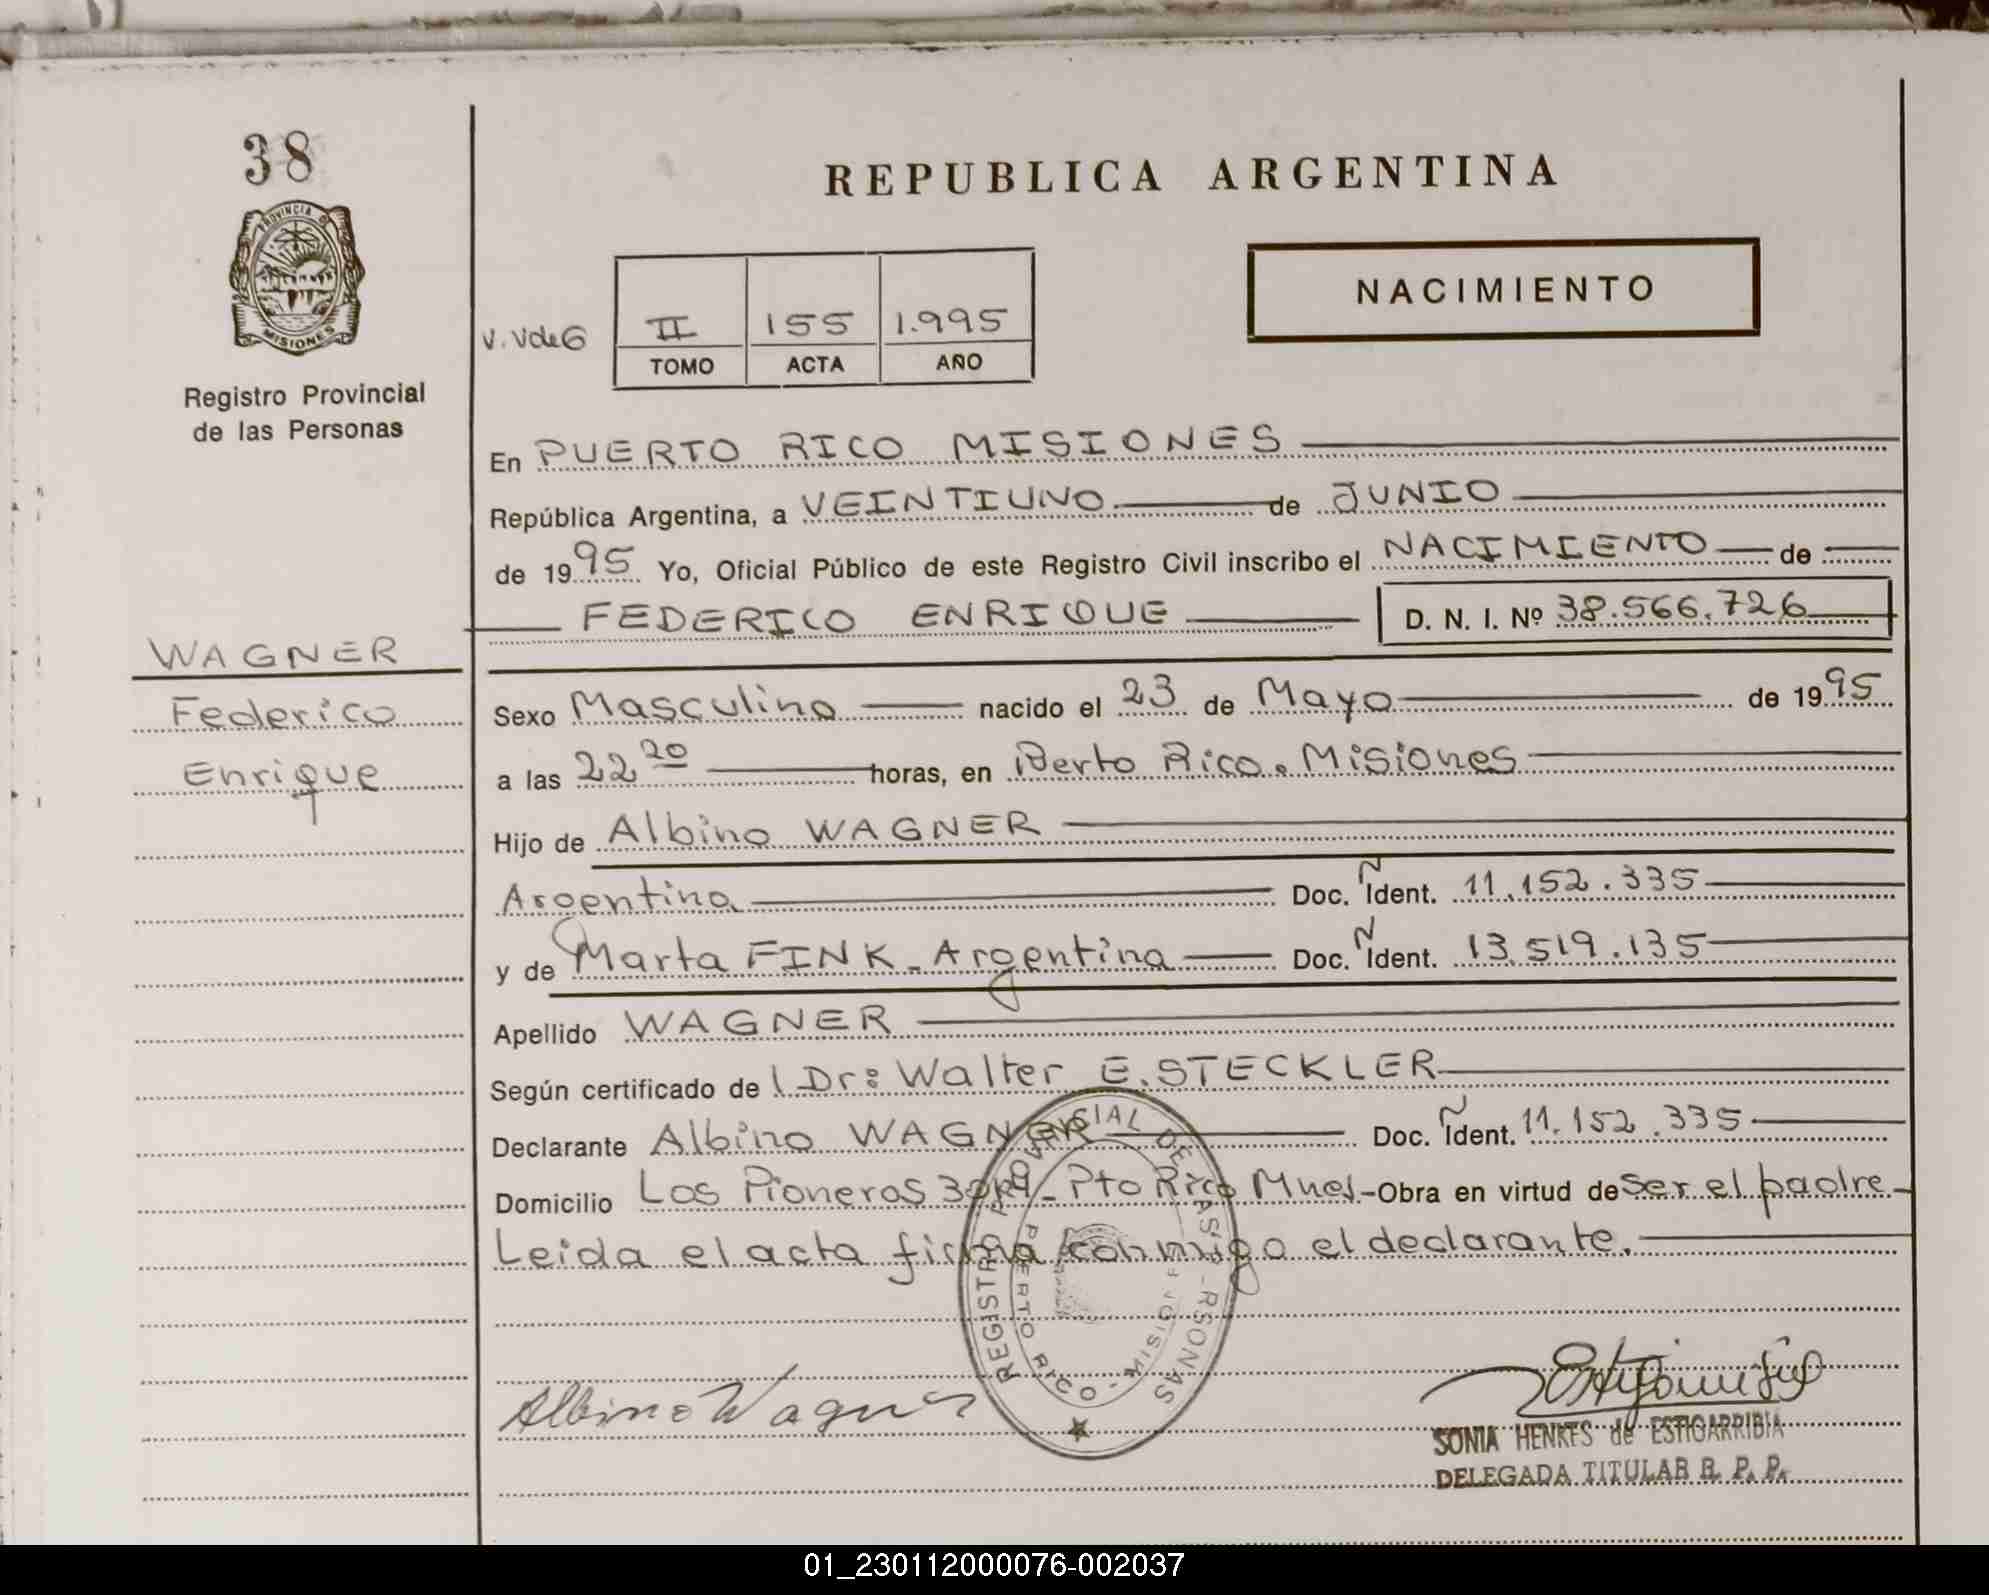 38
PROVINCIA DE
MISIONES
Registro Provincial
de las Personas
REPUBLICA ARGENTINA
NACIMIENTO
V. Vde6
II 155 1.995
TOMO ACTA AÑO
En PUERTO RICO MISIONES
República Argentina, a VEINTIUNO de JUNIO
de 1995 Yo, Oficial Público de este Registro Civil inscribo el NACIMIENTO de
FEDERICO ENRIQUE D. N. I. Nº 38.566.726
WAGNER
Federico
Enrique
Sexo Masculino nacido el 23 de Mayo de 1995
a las 22 20 horas, en Perto Rico. Misiones
Hijo de Albino WAGNER
Argentina Doc. Ñ Ident. 11.152.335
y de Marta FINK - Argentina Doc. Ñ Ident. 13.519.135
Apellido WAGNER
Según certificado de l Dr: Walter E. STECKLER
Declarante Albino WAGNER Doc. Ñ Ident. 11.152.335
Domicilio Los Pioneros - Pto Rico Mnes - Obra en virtud de ser el padre -
Leida el acta firma conmigo el declarante.
REGISTRO PROVINCIAL DE LAS PERSONAS
PUERTO RICO - MISIONES
Albino Wagner
SONIA HENKES de ESTIGARRIBIA
DELEGADA TITULAR R. P. P.
01_230112000076-002037